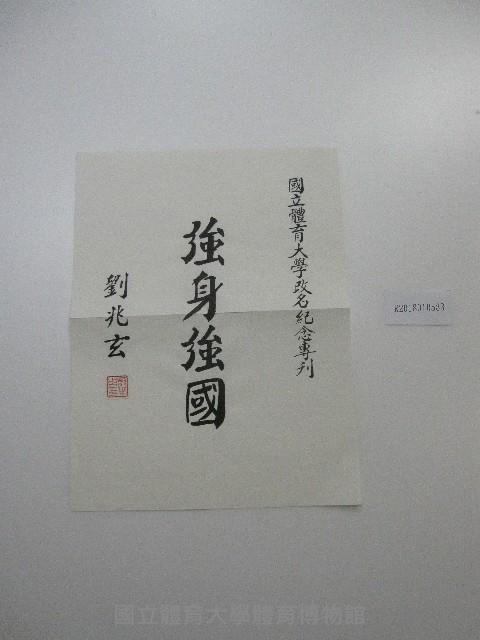 國立體育大學改名紀念專刊
強身強國
劉兆玄
國立體育大學體育博物館